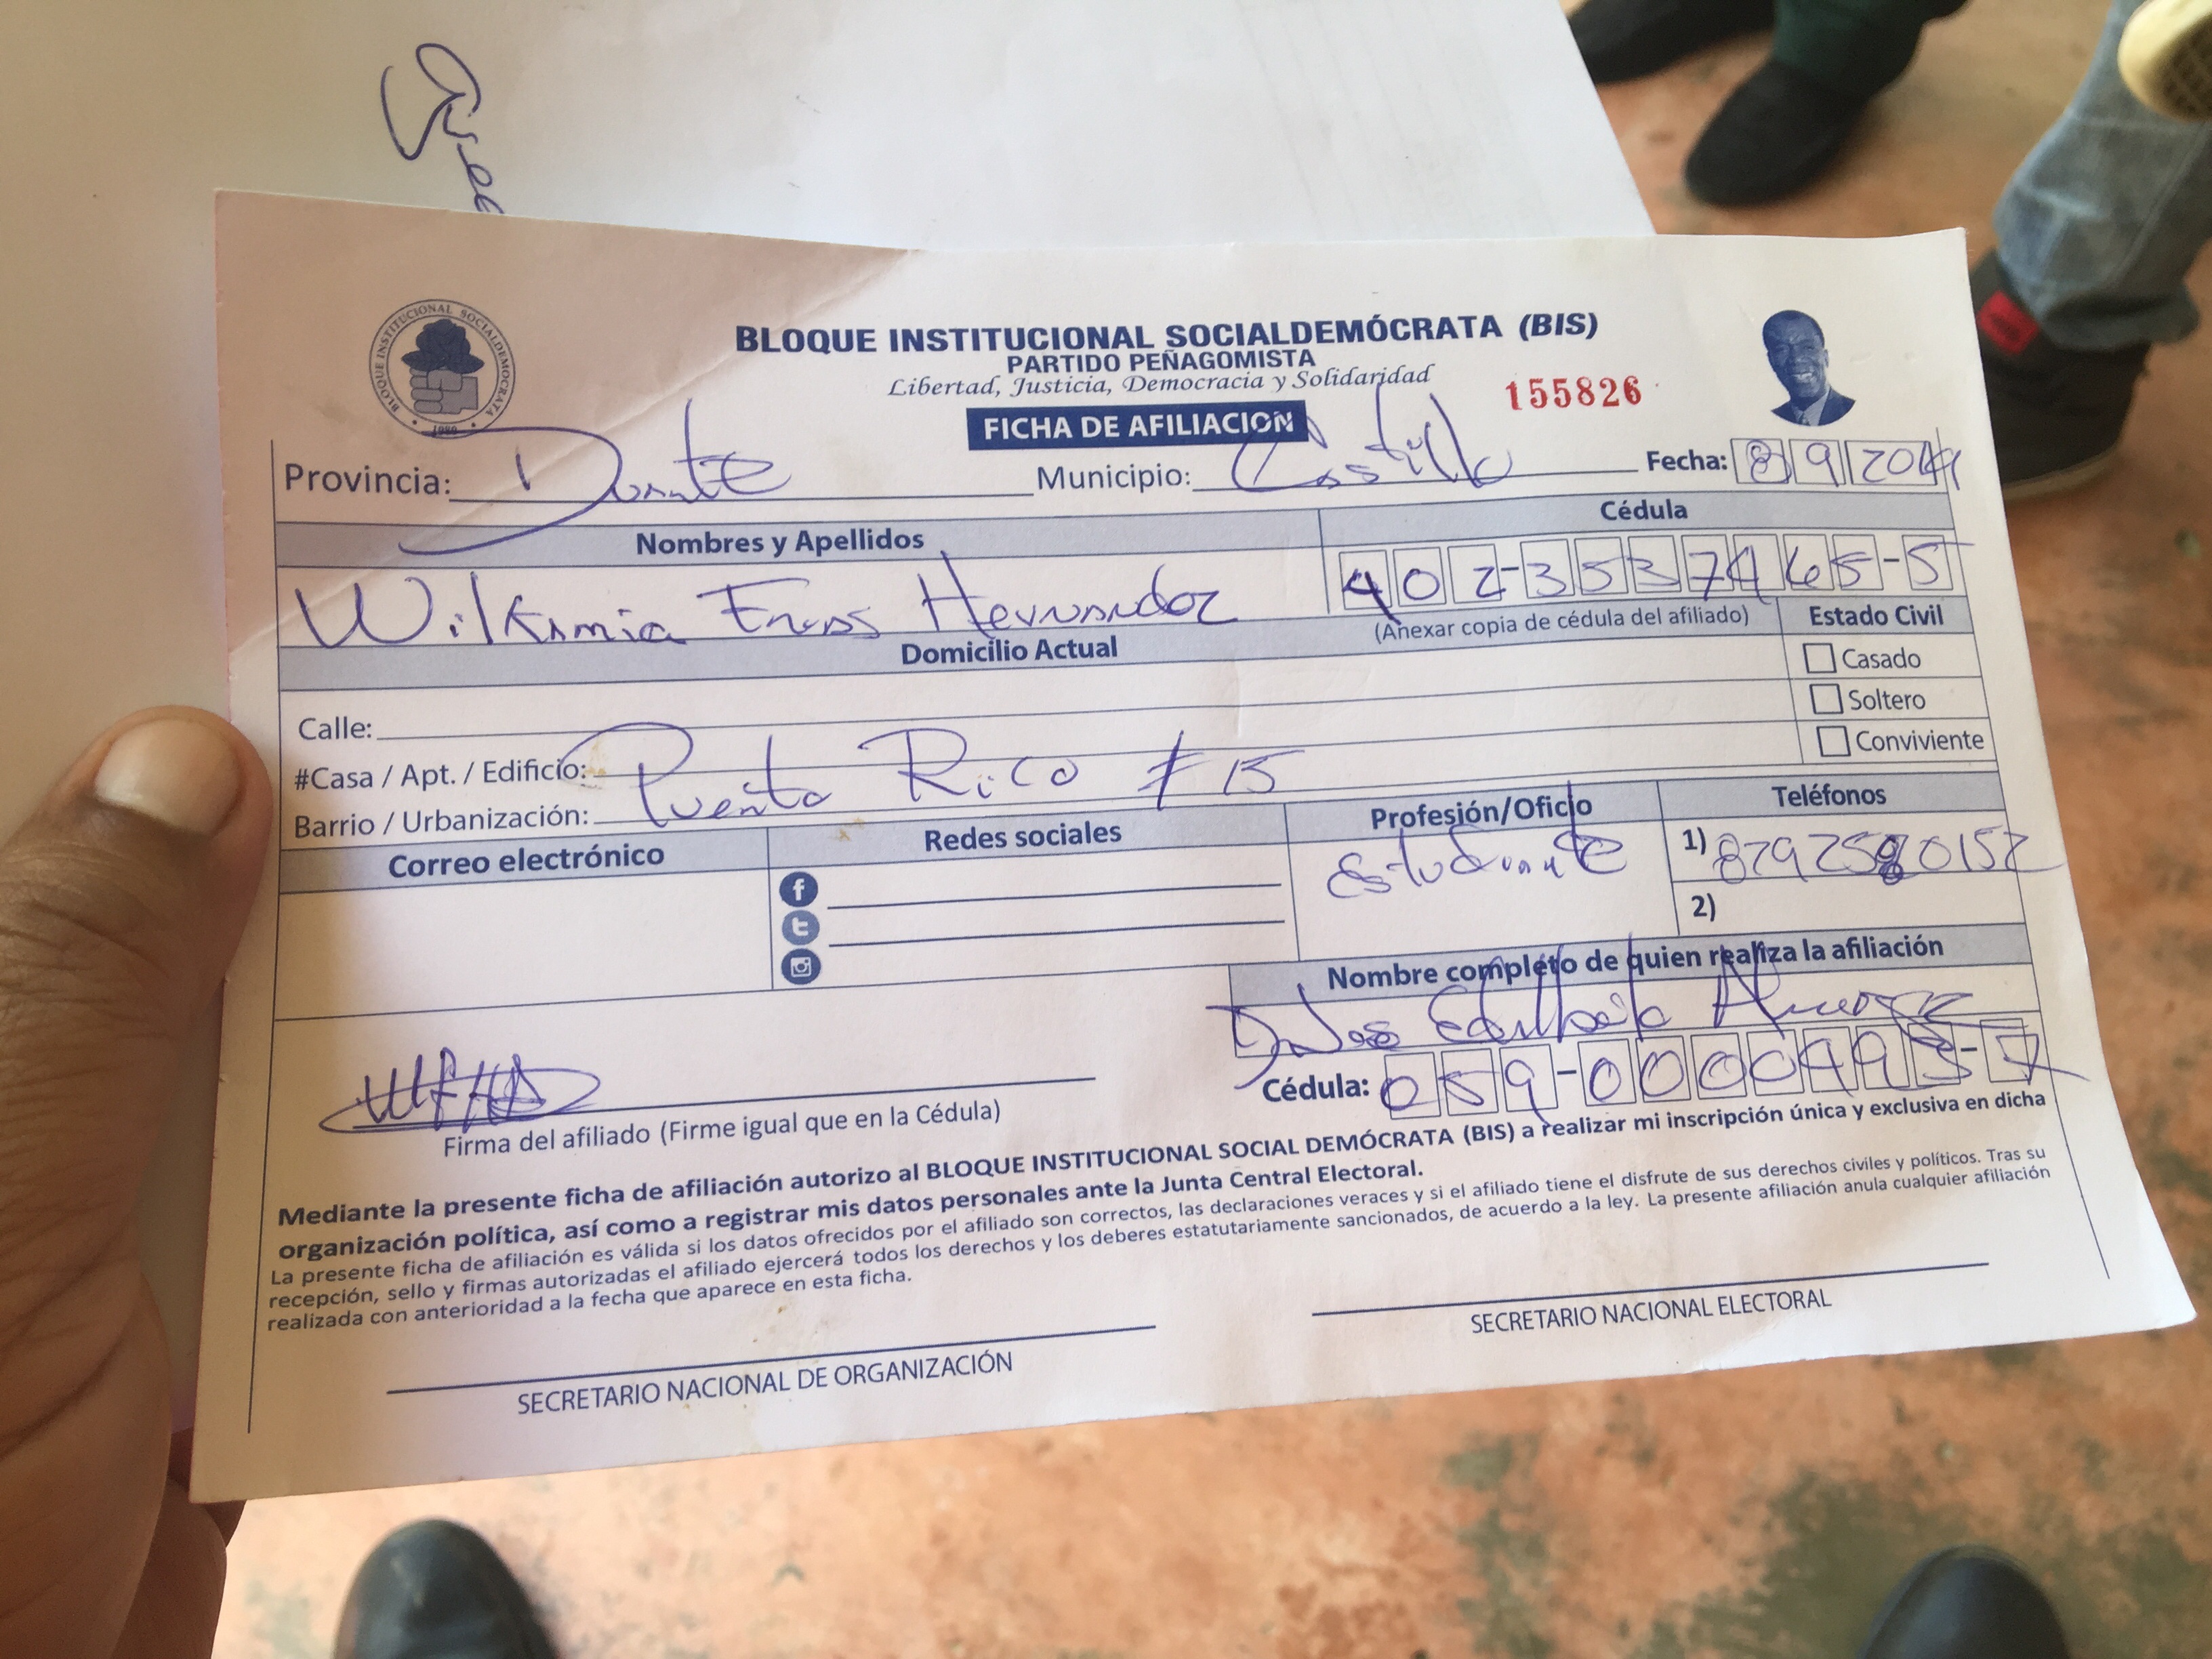 BLOQUE INSTITUCIONAL SOCIALDEMÓCRATA
1989
BLOQUE INSTITUCIONAL SOCIALDEMÓCRATA (BIS)
PARTIDO PEÑAGOMISTA
Libertad, Justicia, Democracia y Solidaridad
155826
FICHA DE AFILIACION
Provincia: Duarte Municipio: Castillo Fecha: 8 9 201
Nombres y Apellidos Cédula
Hernandez 402-3537465-5
(Anexar copia de cédula del afiliado)
Domicilio Actual
Estado Civil
Casado
Soltero
Conviviente
Calle:
#Casa / Apt. / Edificio:
Barrio / Urbanización: Puerto Rico # 15
Correo electrónico Redes sociales Profesión/Oficio Teléfonos
Estudiante
1) 829250152
2)
Nombre completo de quien realiza la afiliación
Jose
Cédula: 059-0000493-7
Firma del afiliado (Firme igual que en la Cédula)
Mediante la presente ficha de afiliación autorizo al BLOQUE INSTITUCIONAL SOCIAL DEMÓCRATA (BIS) a realizar mi inscripción única y exclusiva en dicha
organización política, así como a registrar mis datos personales ante la Junta Central Electoral.
La presente ficha de afiliación es válida si los datos ofrecidos por el afiliado son correctos, las declaraciones veraces y si el afiliado tiene el disfrute de sus derechos civiles y políticos. Tras su
recepción, sello y firmas autorizadas el afiliado ejercerá todos los derechos y los deberes estatutariamente sancionados, de acuerdo a la ley. La presente afiliación anula cualquier afiliación
realizada con anterioridad a la fecha que aparece en esta ficha.
SECRETARIO NACIONAL DE ORGANIZACIÓN
SECRETARIO NACIONAL ELECTORAL